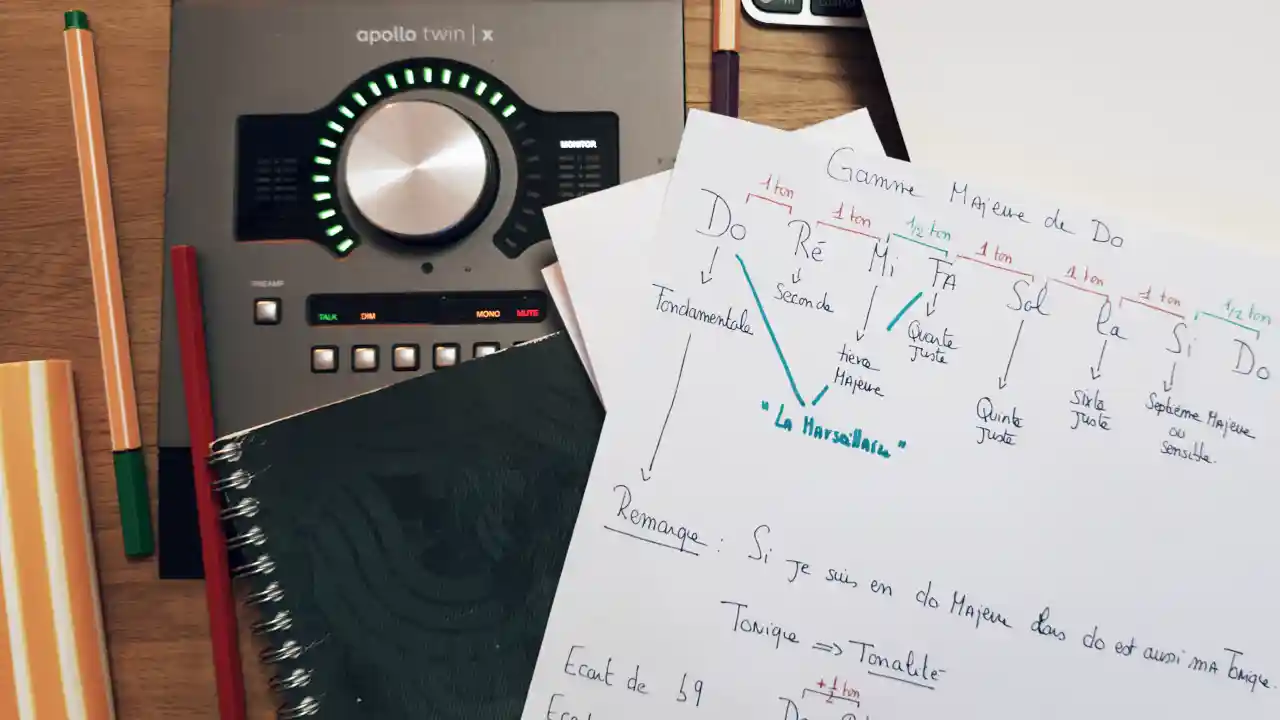 apollo twin | x
MONITOR
PREAMP
TALK DIM MONO MUTE
Gamme Majeure de Do
1 ton 1 ton 1/2 ton 1 ton 1 ton 1 ton 1/2 ton
Do Ré Mi FA Sol la Si Do
Fondamentale
Seconde
tierce Majeure
Quarte Juste
Quinte Juste
sixte Juste
Septième Majeure ou sensible.
"La Marseillaise"
Remarque : Si je suis en do Majeur alors do est aussi ma Tonique.
Tonique => Tonalité
Ecart de b9
+ 1/2 ton
Do